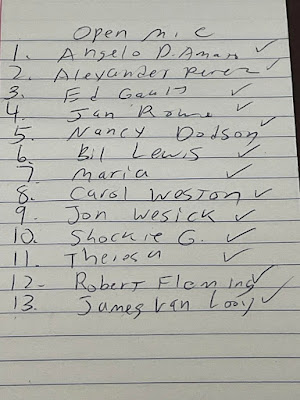 Open Mic
1. Angelo D. Amaro ✓
2. Alexander Perez ✓
3. Ed Gault ✓
4. Jan Rowe ✓
5. Nancy Dodson ✓
6. Bil Lewis ✓
7 Maria ✓
8. Carol Weston ✓
9. Jon Wesick ✓
10. Shockie G. ✓
11. Theresa ✓
12- Robert Fleming ✓
13. James Van Looy ✓